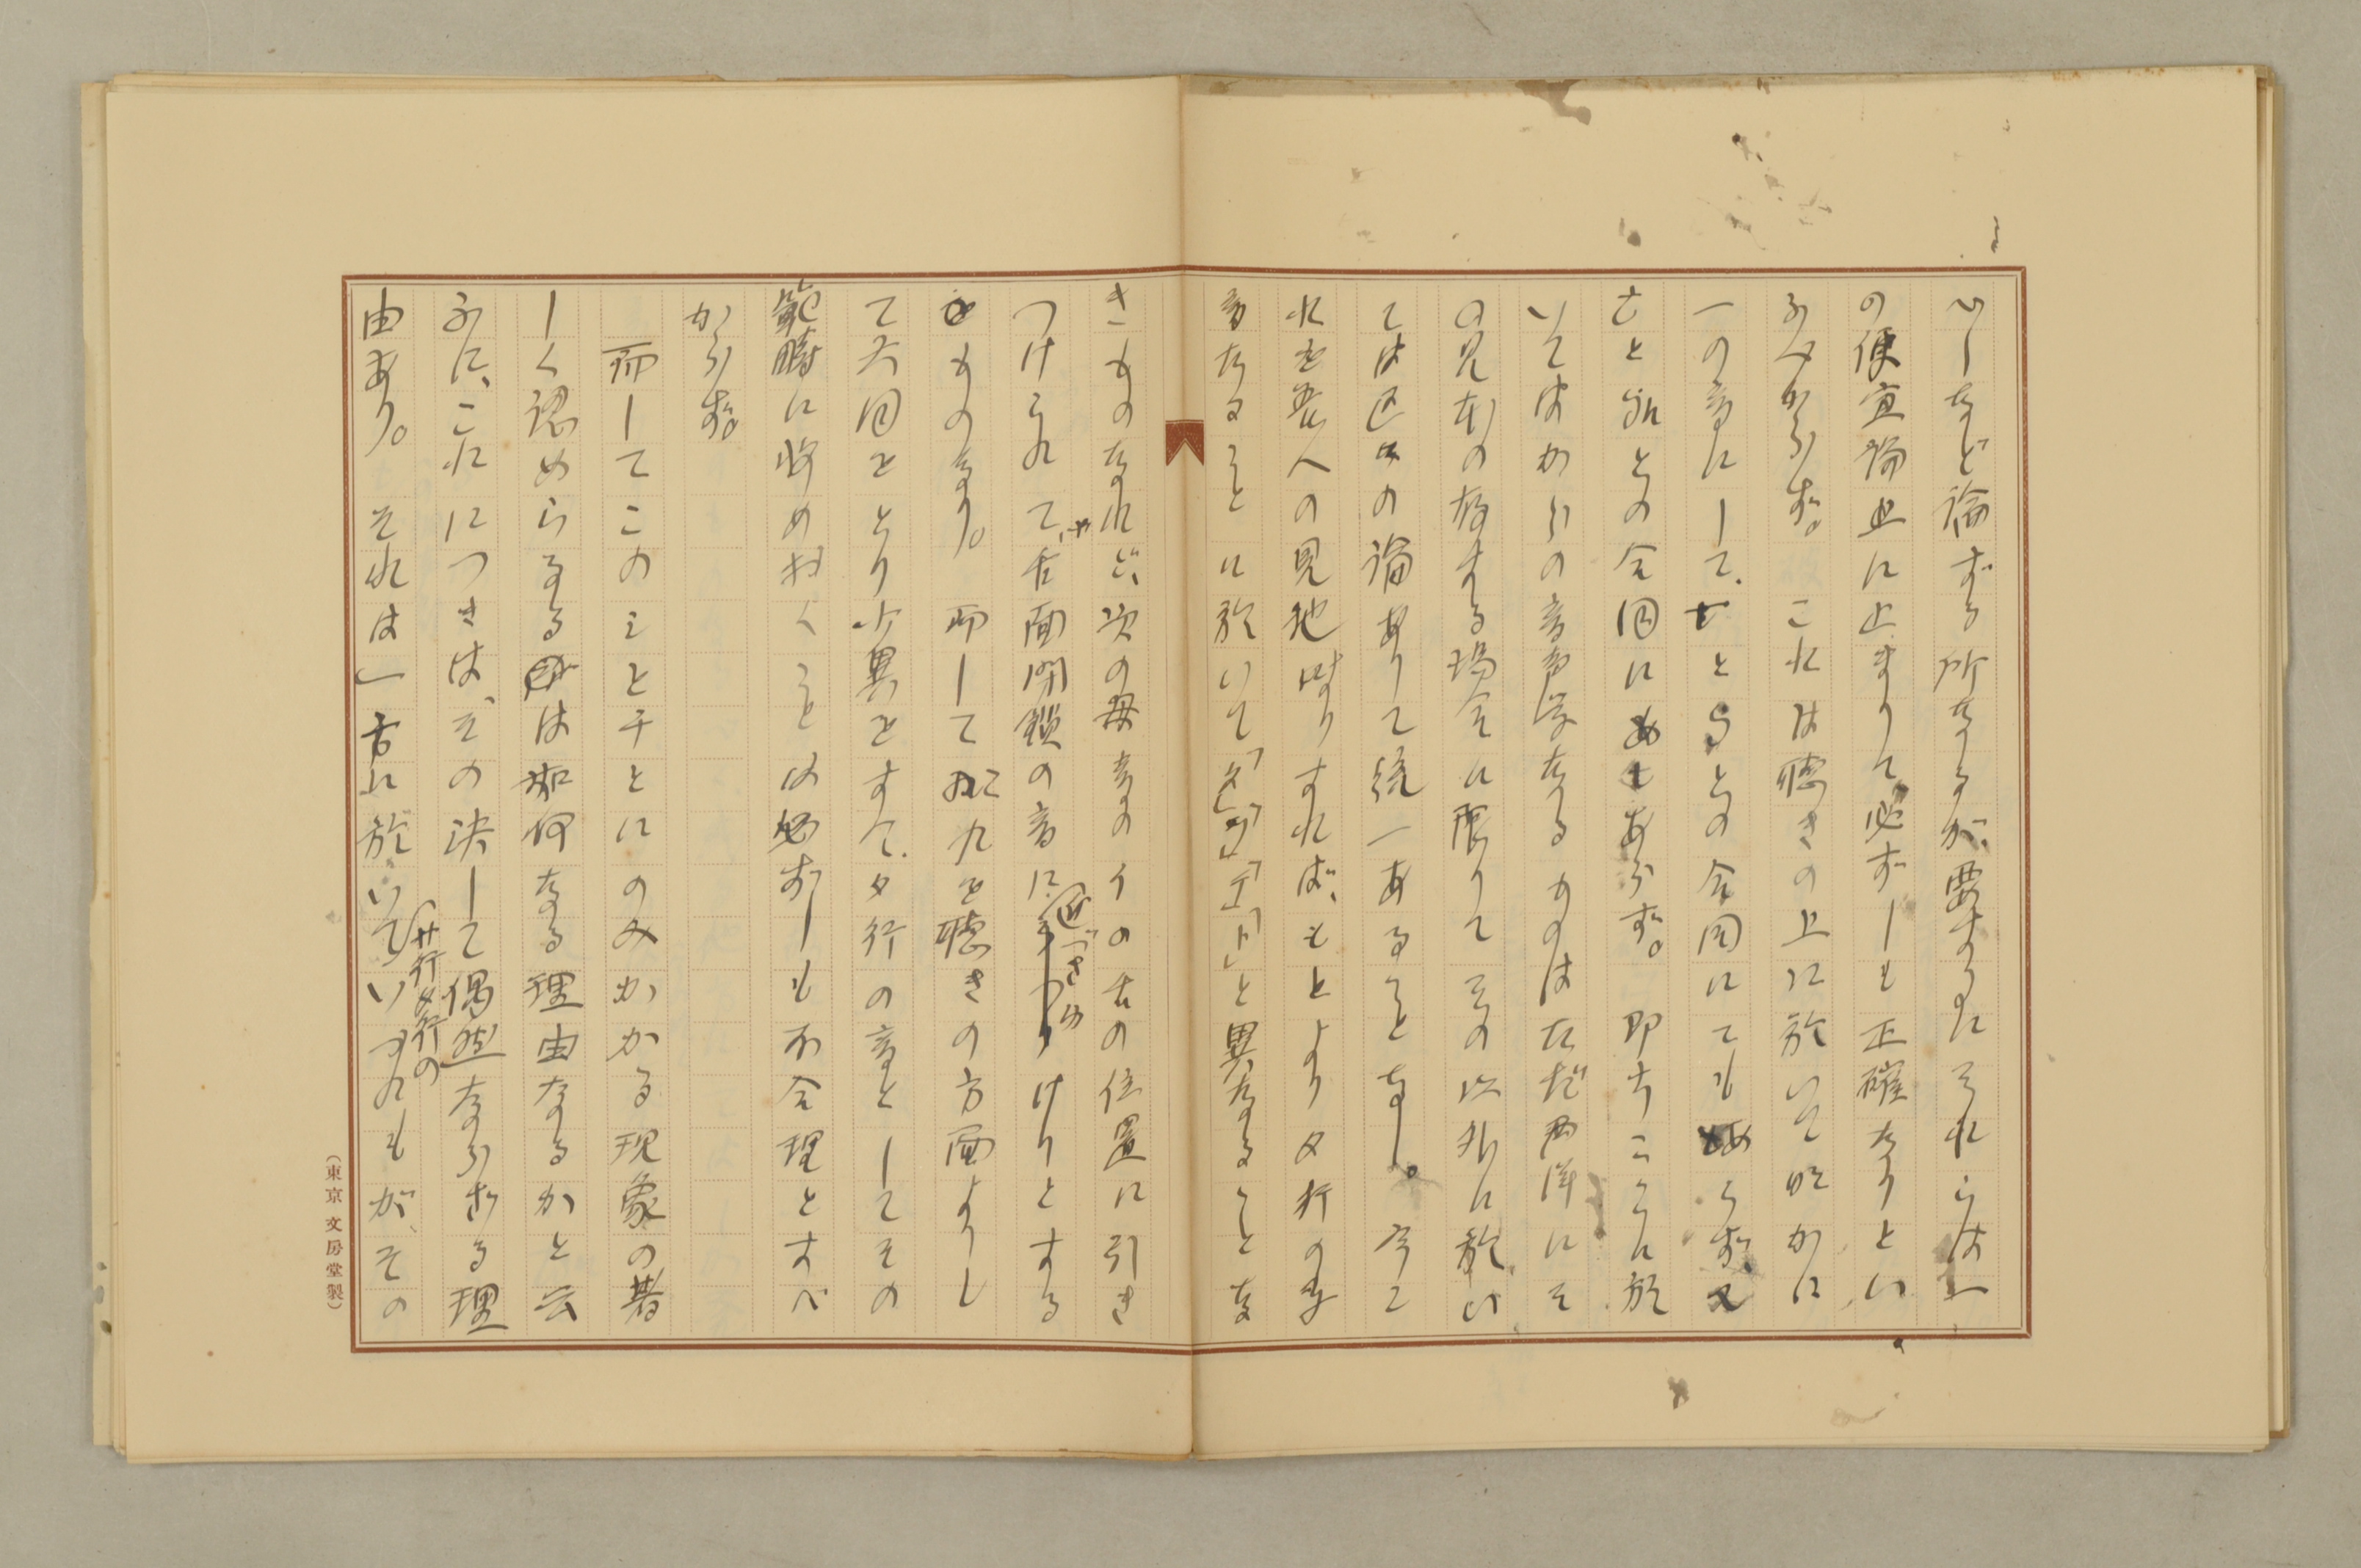 心しなど論ずる所なるが、要するにそれらは一
の便宜論止に止まりて必ずしも正確なりとい
ふべからず。これは聴きの上に於いて明かに
一の音にして、tとsとの合同にても
tとshとの合同にもあらず。即ちここに於
いてはからの音声学なるものはただ西洋にそ
の見本の存する場合に限りてその以外に於い
ては区々の論ありて統一あることなし。今こ
れを吾人の見地よりすれば、もとよりタ行の子
音なることに於いて「タ」「ツ」「テ」「ト」と異なることな
きものなれど、次の母音のイの舌の位置に引き
つけられて、や舌面閉鎖の音に近づきたりとする
ものなり。而して我々を聴きの方面よりし
て大同をとり小異をすて、タ行の音としてその
範疇に収めおくことは必ずしも不合理とすべ
からず。
而してこのシとチとにのみかかる現象の著
しく認めらるるは如何なる理由なるかと云
ふに、これにつきては、その決して偶然ならざる理
由あり。それは一方に於いてサ行タ行のいづれもが、その
(東京 文房堂製)